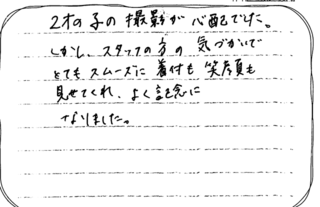 2才の子の撮影が心配でした。
しかし、スタッフの方の気づかいで
とてもスムーズに着付も笑顔も
見せてくれ、よく記念に
なりました。